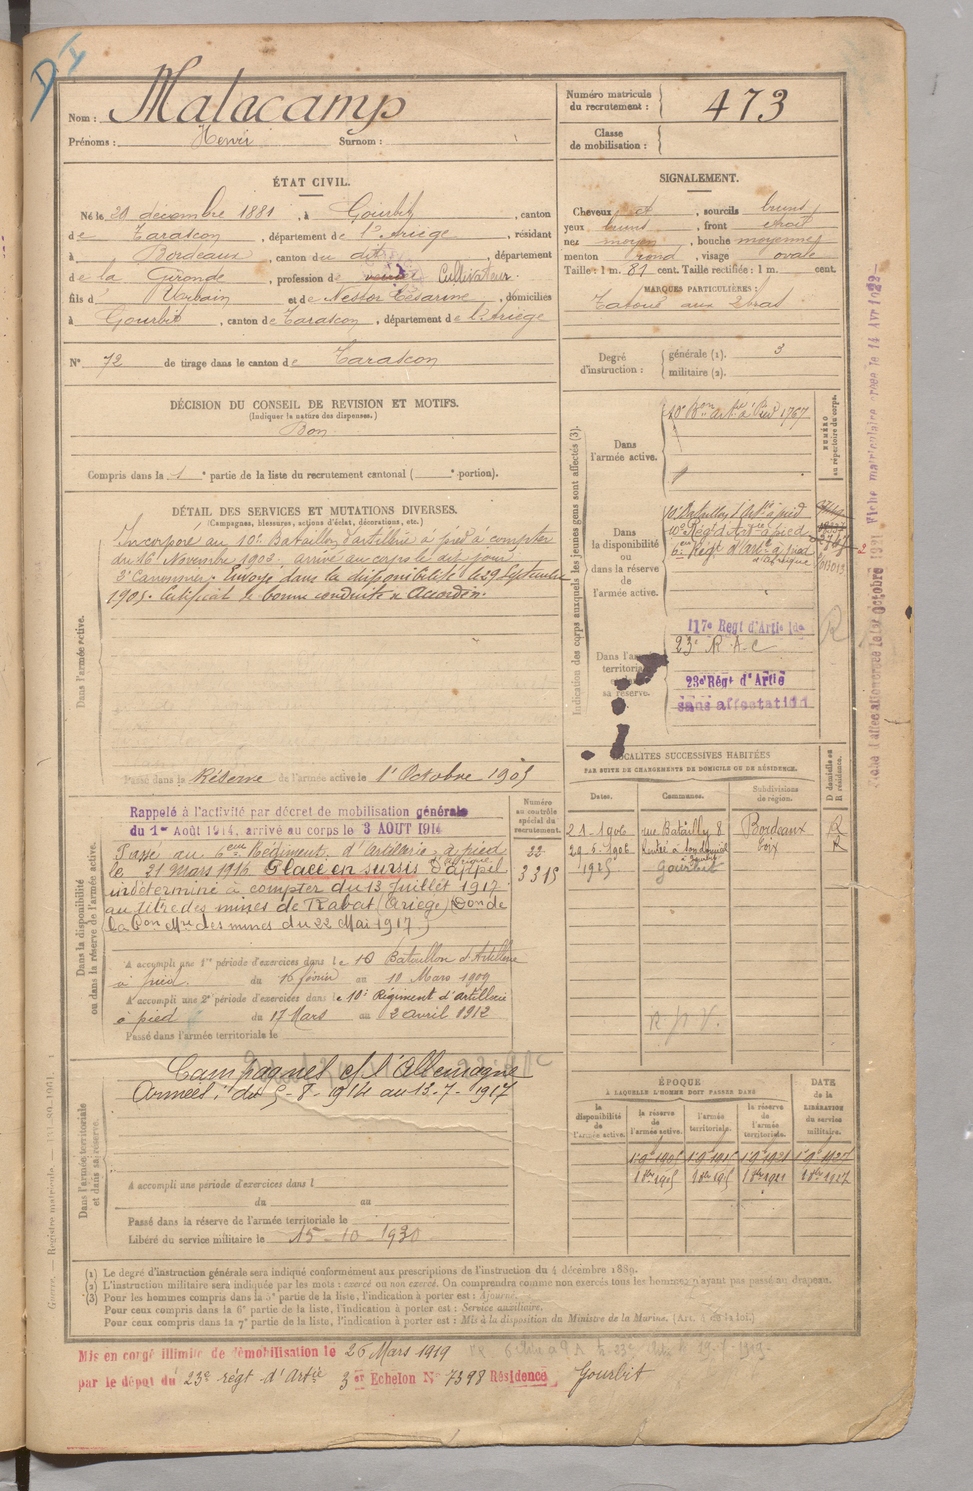 Nom : Malacamp
Prénoms : Henri Surnom :
Numéro matricule du recrutement : 473
Classe de mobilisation :
ÉTAT CIVIL.
Né le 20 décembre 1881, à Gourbit, canton
de Tarascon, département de l'Ariège, résidant
à Bordeaux, canton du dit, département
de la Gironde, profession de Cultivateur.
fils d' Urbain et de Nestor Césarine, domiciliés
à Gourbit, canton de Tarascon, département de l'Ariège
N° 72 de tirage dans le canton de Tarascon
SIGNALEMENT.
Cheveux et, sourcils bruns
yeux bruns, front étroit
nez moyen, bouche moyenne
menton rond, visage ovale
Taille : 1 m. 81 cent. Taille rectifiée : 1 m. cent.
MARQUES PARTICULIÈRES :
Tatoué aux 2 bras
Degré d'instruction : générale (1). 3
militaire (2).
DÉCISION DU CONSEIL DE REVISION ET MOTIFS.
(Indiquer la nature des dispenses.)
Bon
Compris dans la 1e partie de la liste du recrutement cantonal ( e portion).
DÉTAIL DES SERVICES ET MUTATIONS DIVERSES.
(Campagnes, blessures, actions d'éclat, décorations, etc.)
Dans l'armée active.
Incorporé au 10e Bataillon d'artillerie à pied à compter
du 16 Novembre 1903. arrivé au corps le dit jour
2e Canonnier. Envoyé dans la disponibilité le 29 Septembre
1905. Certificat de bonne conduite "Accordé".
Passé dans la Réserve de l'armée active le 1er Octobre 1905
Indication des corps auxquels les jeunes gens sont affectés (3).
NUMÉRO au répertoire du corps.
Dans l'armée active.
Dans la disponibilité ou dans la réserve de l'armée active.
10e Bataillon d'Artie à pied
10e Régt d'Artie à pied
6e Régt d'Artie à pied
d'afrique
Dans l'armée territoriale
sa réserve.
117e Regt d'Artie lde
23e R.A.C
23e Régt d'Artie
sans affectation
R
Fiche d'affectation créée le 1er Octobre 1921 Fiche matriculaire créée le 14 Avr 1922
Dans la disponibilité ou dans la réserve de l'armée active.
Rappelé à l'activité par décret de mobilisation générale
du 1er Août 1914, arrivé au corps le 3 AOUT 1914
Passé au 6eme Régiment d'Artillerie à pied
d'afrique
le 21 Mars 1916. Placé en sursis d'appel
indéterminé à compter du 13 Juillet 1917
au titre des mines de Rabat (Ariège) Don de
la Don Mre des mines du 22 Mai 1917)
Numéro au contrôle spécial du recrutement.
22
3315
A accompli une 1re période d'exercices dans le 10 Bataillon d'Artillerie
à pied du 16 février au 10 Mars 1909
A accompli une 2e période d'exercices dans le 10e Régiment d'artillerie
à pied du 17 Mars au 2 avril 1912
Passé dans l'armée territoriale le
LOCALITÉS SUCCESSIVES HABITÉES
PAR SUITE DE CHANGEMENTS DE DOMICILE OU DE RÉSIDENCE.
Dates. Communes. Subdivisions de région. D domicile ou R résidence.
21-1-906 rue Batailly 8 Bordeaux R
29-5-906 Foix R
1925 Gourbit
R.p.V.
Dans l'armée territoriale et dans sa réserve.
Campagnes c/ l'Allemagne
Armées : du 5-8-1914 au 13-7-1917
A accompli une période d'exercices dans l
du au
Passé dans la réserve de l'armée territoriale le
Libéré du service militaire le 15-10-1930
ÉPOQUE
À LAQUELLE L'HOMME DOIT PASSER DANS
la disponibilité de l'armée active. la réserve de l'armée active. l'armée territoriale. la réserve de l'armée territoriale.
DATE de la LIBÉRATION du service militaire.
(1) Le degré d'instruction générale sera indiqué conformément aux prescriptions de l'instruction du 4 décembre 1889.
(2) L'instruction militaire sera indiquée par les mots : exercé ou non exercé. On comprendra comme non exercés tous les hommes n'ayant pas passé au drapeau.
(3) Pour les hommes compris dans la 5e partie de la liste, l'indication à porter est : Ajourné.
Pour ceux compris dans la 6e partie de la liste, l'indication à porter est : Service auxiliaire.
Pour ceux compris dans la 7e partie de la liste, l'indication à porter est : Mis à la disposition du Ministre de la Marine. (Art. 4 de la loi.)
Mis en congé illimité de démobilisation le 26 Mars 1919
par le dépôt du 23e régt d'Artie 3e Echelon N° 7398 Résidence Gourbit